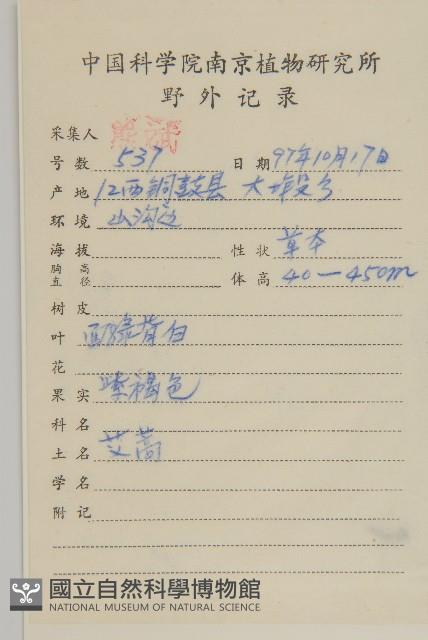 中国科学院南京植物研究所
野外记录
采集人 熊斌
号数 537 日期 97年10月17日
产地 江西铜鼓县 大塅乡
环境 山沟边
海拔 性状 草本
胸高直径 体高 40—450m
树皮
叶 面绿背白
花
果实 紫褐色
科名
土名 艾蒿
学名
附记
國立自然科學博物館
NATIONAL MUSEUM OF NATURAL SCIENCE